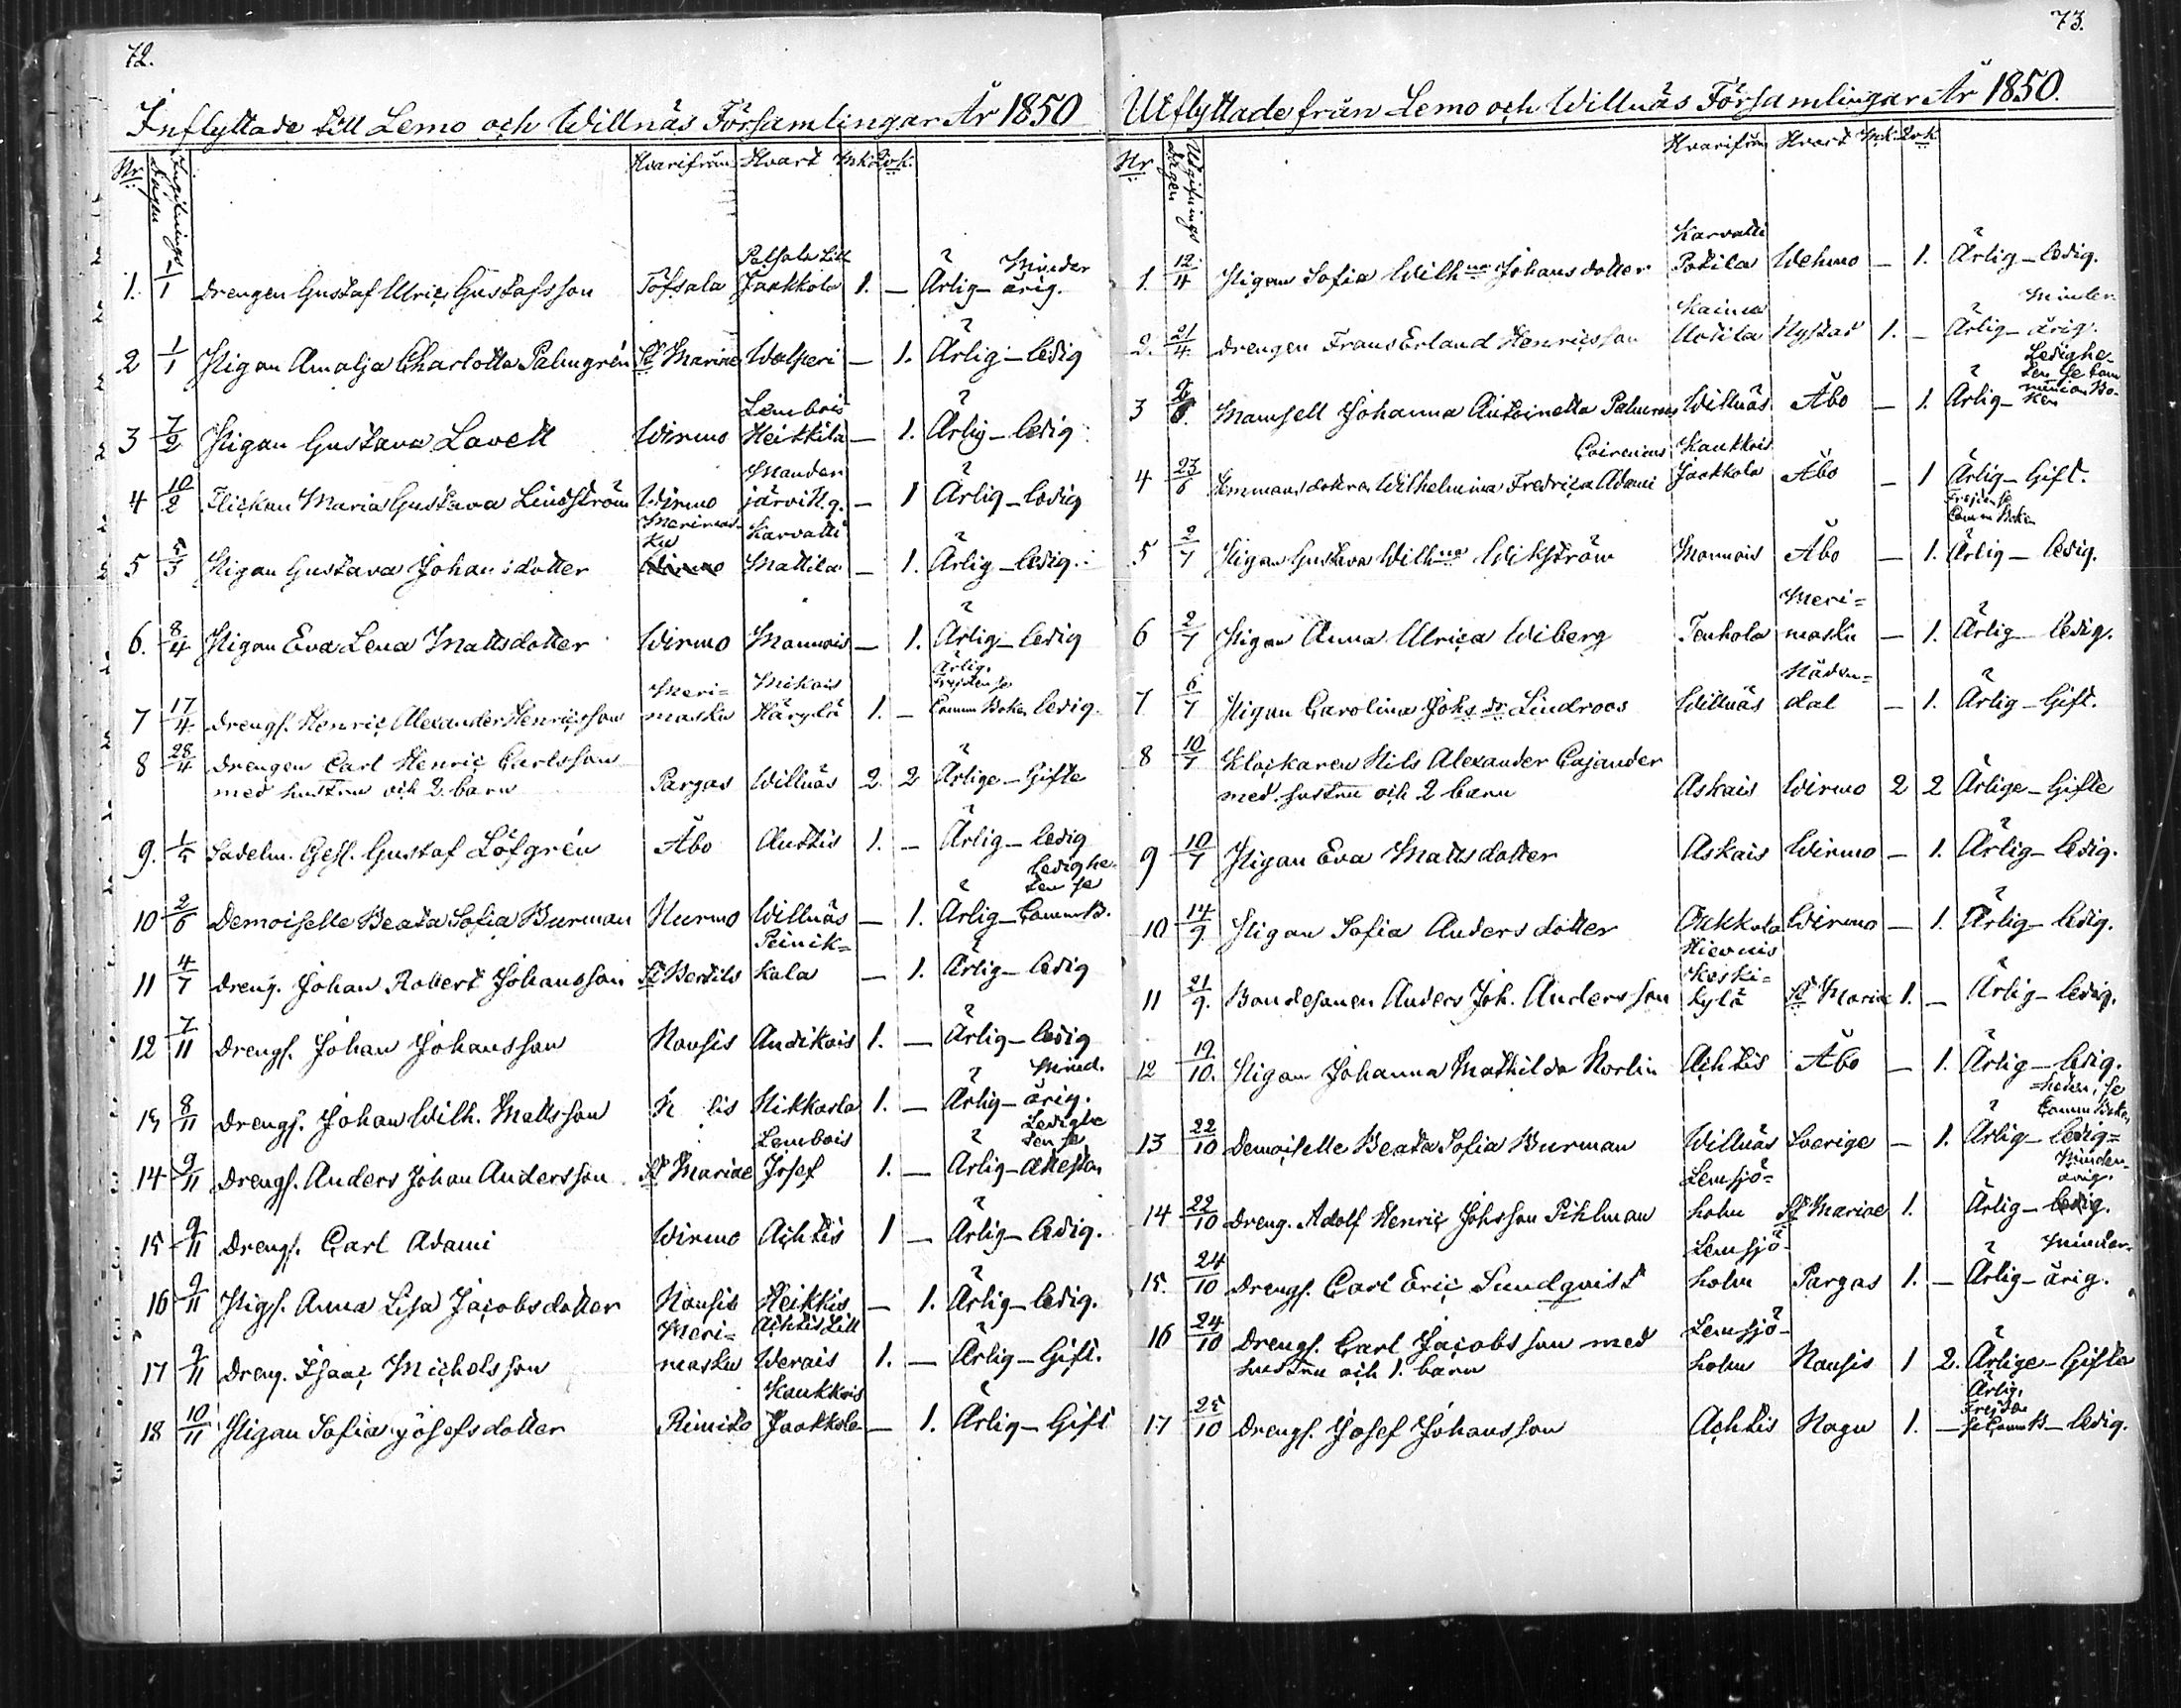 72.
Inflyttade till Lemo och Willnäs Församlingar År 1850
Nr Ingifnings dagen Hvarifrån Hvart Mk. Qvk.
1. 1/1 Drengen Gustaf Ulric Gustafsson Töfsala Patsala Lill Jaakkola 1. — Ärlig — Minder årig.
2 1/1 Pigan Amalja Charlotta Palmgrén St Mariae Wolperi — 1. Ärlig — ledig
3 7/2 Pigan Gustava Lavell Wirmo Lembois Heikkilä — 1. Ärlig — ledig
4 10/2 Flickan Maria Gustava Lindström Wirmo järvi N.g. — 1 Ärlig — ledig
5 5/3 Pigan Gustava Johansdotter Merimasku Karvatti Mattila — 1. Ärlig — ledig.
6. 8/4 Pigan Eva Lena Mattsdotter Wirmo Monnois — 1. Ärlig — ledig
7 17/4 Drengs. Henric Alexander Henricsson Meri=masku Mikois Härylä 1. — Ärlig. Frejden se Comm Boken ledig.
8 28/4 Drengen Carl Henric Carlsson
med hustru och 2. barn Pargas Willnäs 2. 2 Ärlige — Gifte
9. 1/5 Sadelm. Gesl. Gustaf Löfgrén Åbo Anttis 1. — Ärlig — ledig
10 2/6 Demoiselle Beata Sofia Burman Nurmo Willnäs — 1. Ärlig — ledighe-ten se Comm B.
11 4/7 Dreng. Johan Robert Johansson St Bertils Peinik=kala — 1. Ärlig — ledig
12 7/11 Drengs. Johan Johansson Nousis Andikois 1. — Ärlig — ledig
13 8/11 Drengs. Johan Wilh. Mattsson Nikkarla 1. — Ärlig — Mind. årig.
14 9/11 Drengs. Anders Johan Andersson St Mariae Lembois Josef 1. — Ärlig — Ledighe ten se attesten
15 9/11 Drengs. Carl Adami Wirmo Achtis 1 — Ärlig — ledig.
16 9/11 Pigs. Anna Lisa Jacobsdotter Nousis Heikkis — 1. Ärlig — ledig.
17 9/11 Dreng. Isaac Michelsson Meri=masku Achtis Lill Werais 1. — Ärlig — Gift.
18 10/11 Pigan Sofia Josefsdotter Rimito Kaukkois Jaakkola — 1. Ärlig — Gift
73.
Utflyttade från Lemo och Willnäs Församlingar År 1850.
Nr Utgifnings dagen Hvarifrån Hvart Mk. Qvk.
1. 12/4 Pigan Sofia Wilhna Johansdotter Karvatti Potila Wehmo — 1. Ärlig — ledig.
2. 21/4 Drengen Frans Erland Henricsson Kaima Nystad 1. — Ärlig — Minder årig.
3 Mamsell Johanna Antoinetta Willnäs Åbo — 1. Ärlig — Ledighe-ten se Communion Bo-ken
4 23/6 Wilhelmina Fredrica Adami Kaukkois Jaakkola Åbo — 1 Ärlig — Gift. Frejden se Comm Boken
5 2/7 Pigan Gustava Wilhna Wikström Monnois Åbo — 1. Ärlig — ledig.
6 2/7 Pigan Anna Ulrica Wiberg Tenhola Meri=masku — 1. Ärlig — ledig.
7 6/7 Pigan Carolina Johs dr Lindroos Willnäs Nåden=dal — 1. Ärlig — Gift.
8 10/7 Klockaren Nils Alexander Cajander
med hustru och 2 barn Askais Wirmo 2 2 Ärlige — Gifte
9 10/7 Pigan Eva Mattsdotter Askais Wirmo — 1. Ärlig — ledig.
10 14/9. Pigan Sofia Andersdotter Wirmo — 1. Ärlig — ledig.
11 21/9. Bondesonen Anders Joh. Andersson Hievois Koski=kylä St Mariae 1. — Ärlig — ledig.
12 19/10. Pigan Johanna Mathilda Norlin Achtis Åbo — 1. Ärlig — ledig.
13 22/10 Demoiselle Beata Sofia Burman Willnäs Sverige — 1. Ärlig — ledig=heten, se Comm Boken
14 22/10 Dreng. Adolf Henric Johsson Pihlman Lemsjö=holm St Mariae 1. Ärlig — ledig. Minder-årig.
15. 24/10 Drengs. Carl Eric Sundqvist Lemsjö-holm Pargas 1. — Ärlig — Minder-årig.
16 24/10 Drengs. Carl Jacobsson med
hustru och 1. barn Lemsjö-holm Nousis 1 2. Ärlige — Gifte
17 25/10 Drengs. Josef Johansson Achtis Nagu 1. — Ärlig, Frejden se Comm B — ledig.